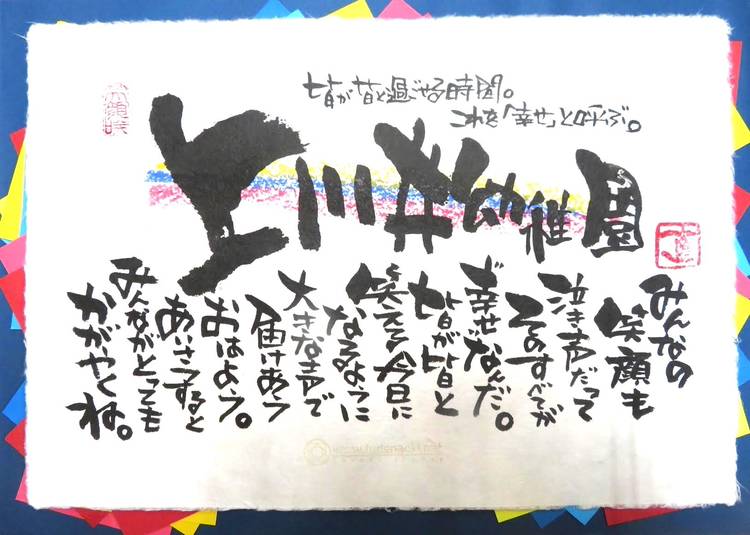 皆が皆と過ごせる時間。
これを「幸せ」と呼ぶ。
上川井幼稚園
みんなの
笑顔も
泣き声だって
そのすべてが
幸せなんだ。
皆が皆と
笑える今日に
なるように
大きな声で
届けあう
おはよう。
あいさつすると
みんながとっても
かがやくね。